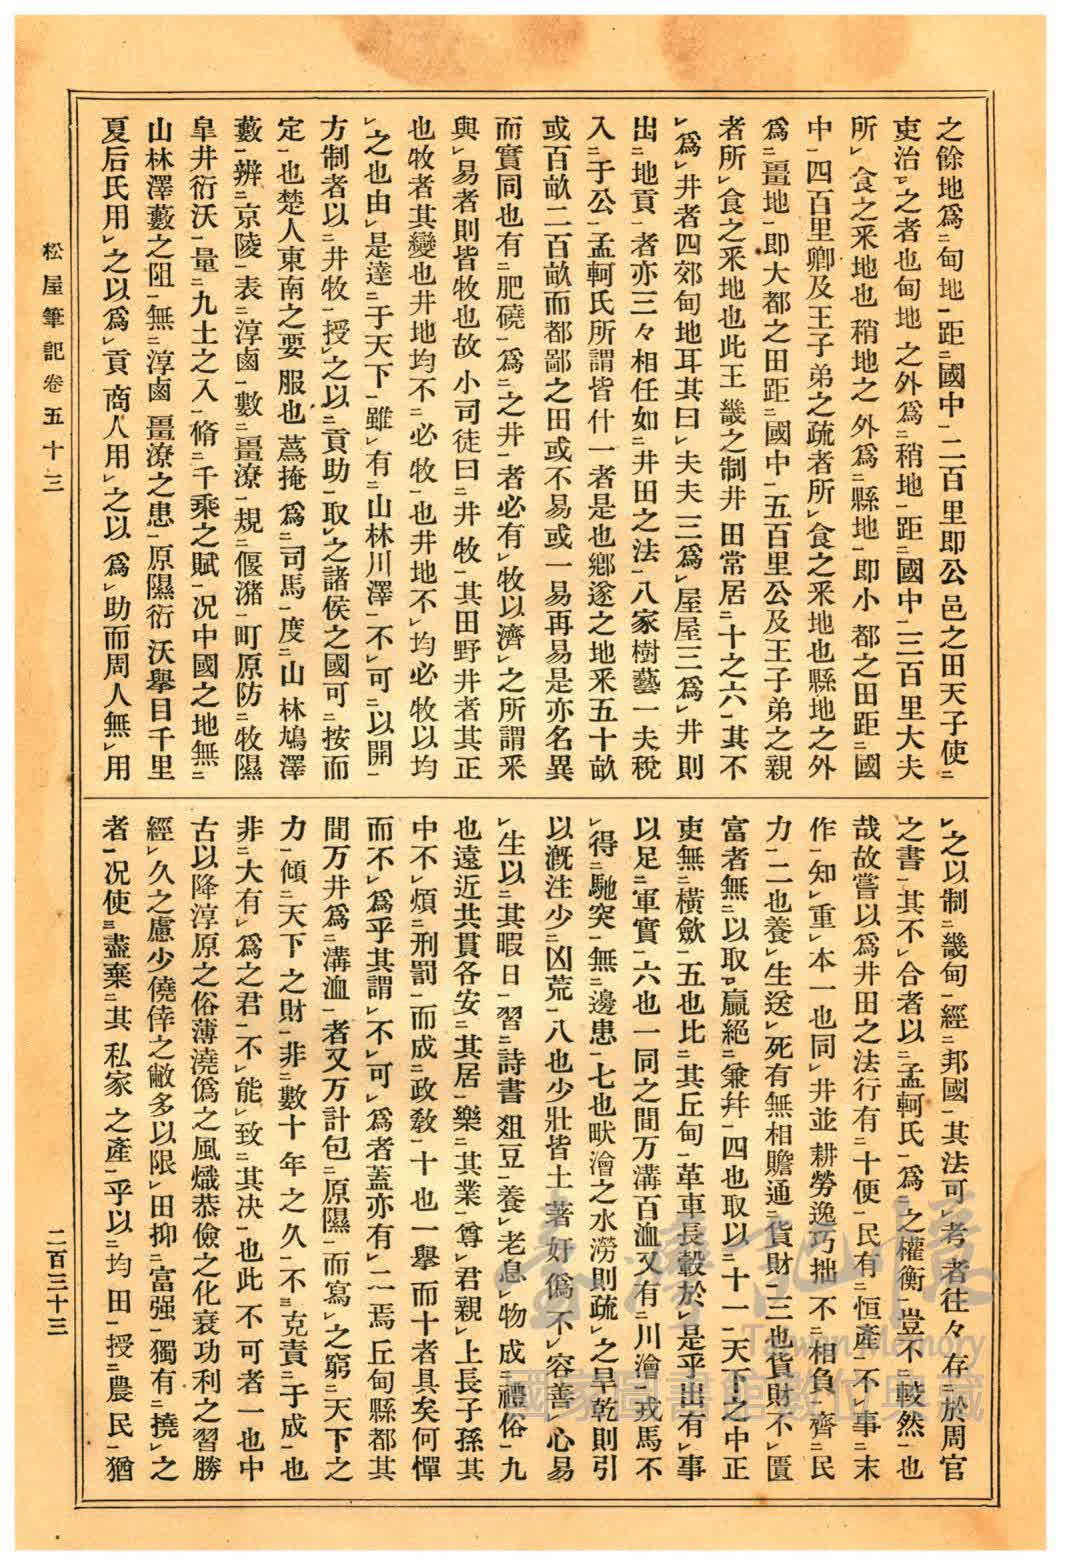 之餘地爲㆓甸地㆒距㆓國中㆒二百里卽公邑之田天子使㆓
吏治㆑之者也甸地之外爲㆓稍地㆒距㆓國中㆒三百里大夫
所㆑食之釆地也稍地之外爲㆓縣地㆒卽小都之田距㆓國
中㆒四百里卿及王子弟之疏者所㆑食之釆地也縣地之外
爲㆓畺地㆒卽大都之田距㆓國中㆒五百里公及王子弟之親
者所㆑食之釆地也此王畿之制井田常居㆓十之六㆒其不
㆑爲㆑井者四郊甸地耳其曰㆑夫夫三爲㆑屋屋三爲㆑井則
出㆓地貢㆒者亦三々相任如㆓井田之法㆒八家樹藝一夫稅
入㆓于公㆒孟軻氏所謂皆什一者是也鄕遂之地釆五十畝
或百畝二百畝而都鄙之田或不易或一易再易是亦名異
而實同也有㆓肥磽㆒爲㆓之井㆒者必有㆑牧以濟㆑之所謂釆
與㆑易者則皆牧也故小司徒曰㆓井牧㆒其田野井者其正
也牧者其變也井地均不㆓必牧㆒也井地不㆑均必牧以均
㆑之也由㆑是達㆓于天下㆒雖㆑有㆓山林川澤㆒不㆑可㆓以開㆒
方制者以㆓井牧㆒授㆑之以㆓貢助㆒取㆑之諸侯之國可㆓按而
定㆒也楚人東南之要服也蔿掩爲㆓司馬㆒度㆓山林鳩澤
藪㆒辨㆓京陵㆒表㆓淳鹵㆒數㆓畺潦㆒規㆓偃瀦㆒町原防㆓牧隰
皐井衍沃㆒量㆓九土之入㆒脩㆓千乘之賦㆒况中國之地無㆓
山林澤藪之阻㆒無㆓淳鹵畺潦之患㆒原隰衍沃擧目千里
夏后氏用㆑之以爲㆑貢商人用㆑之以爲㆑助而周人無㆑用
㆑之以制㆓畿甸㆒經㆓邦國㆒其法可㆑考者往々存㆓於周官
之書㆒其不㆑合者以㆓孟軻氏㆒爲㆓之權衡㆒豈不㆓較然㆒也
哉故嘗以爲井田之法行有㆓十便㆒民有㆓恒產㆒不㆑事㆓末
作㆒知㆑重㆑本一也同㆑井並耕勞逸巧拙不㆓相負㆒齊㆓民
力㆒二也養㆑生送㆑死有無相贍通㆓貨財㆒三也貨財不㆑匱
富者無㆓以取㆑贏絕㆓兼幷㆒四也取以㆓十一㆒天下之中正
吏無㆓橫斂㆒五也比㆓其丘甸㆒革車長轂於㆑是乎出有㆑事
以足㆓軍實㆒六也一同之間万溝百洫又有㆓川澮㆒戎馬不
㆑得㆓馳突㆒無㆓邊患㆒七也畎澮之水澇則疏㆑之旱乾則引
以漑注少㆓凶荒㆒八也少壯皆土著奸僞不㆑容善㆑心易
㆑生以㆓其暇日㆒習㆓詩書俎豆㆒養㆑老息㆑物成㆓禮俗㆒九
也遠近共貫各安㆓其居㆒樂㆓其業㆒尊㆑君親㆑上長子孫其
中不㆑煩㆓刑罰㆒而成㆓政敎㆒十也一擧而十者具矣何憚
而不㆑爲乎其謂㆑不㆑可㆑爲者蓋亦有㆑二焉丘甸縣都其
間万井爲㆓溝洫㆒者又万計包㆓原隰㆒而寫㆑之窮㆓天下之
力㆒傾㆓天下之財㆒非㆓數十年之久㆒不㆔克責㆓于成㆒也
非㆓大有㆑爲之君㆒不㆑能㆑致㆓其决㆒也此不可者一也中
古以降淳原之俗薄澆僞之風熾恭儉之化衰功利之習勝
經㆑久之慮少僥倖之敝多以限㆑田抑㆓富强㆒獨有㆓撓㆑之
者㆒况使㆔盡棄㆓其私家之產㆒乎以㆑均田㆒授㆓農民㆒猶
松屋筆記卷五十三
二百三十三
臺灣記憶
Taiwan Memory
國家圖書館數位典藏